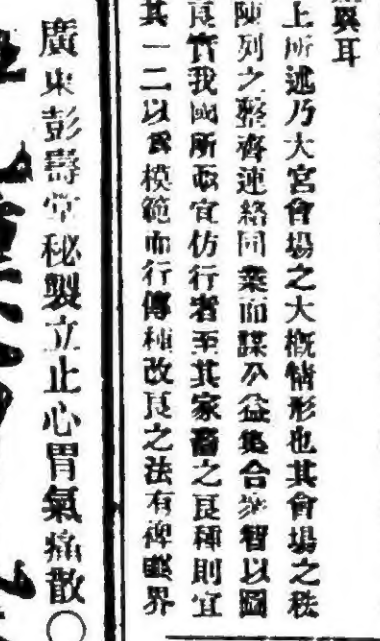 與耳
上所述乃大宮會場之大概情形也其會場之秩
陳列之整齊連絡同業而謀公益集合衆智以圖
良實我國所亟宜仿行者至其家畜之良種則宜
其一二以爲模範而行傳種改良之法有裨畎界
廣東彭壽堂秘製立止心胃氣痛散〇